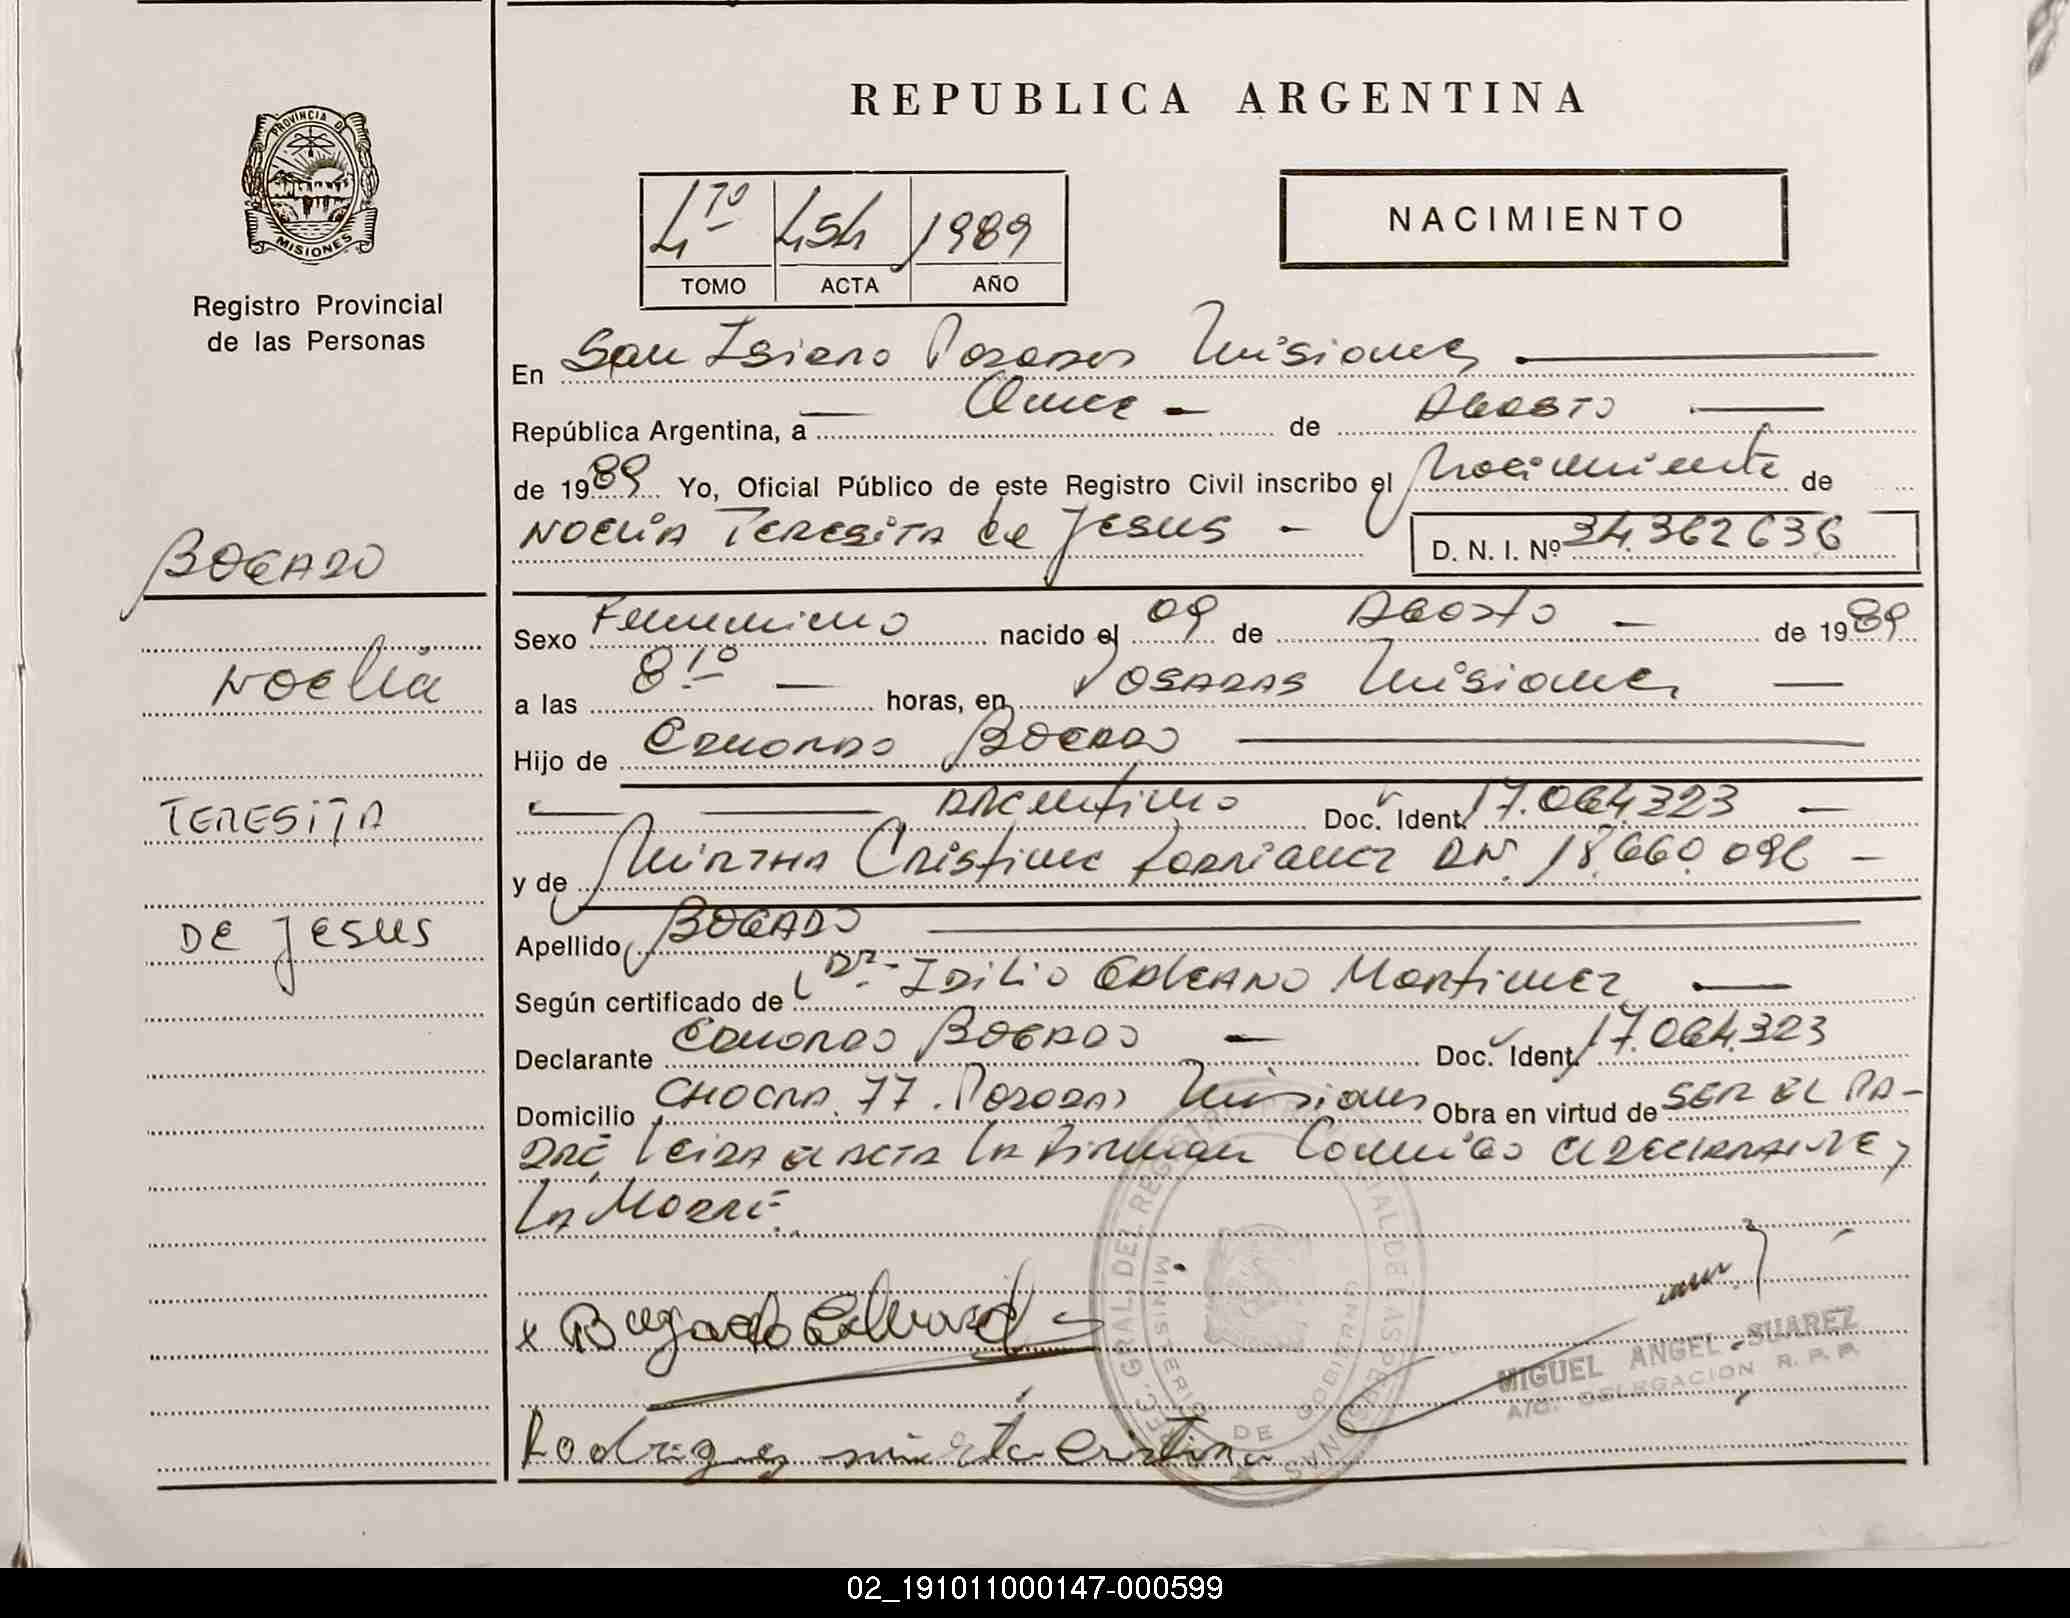 PROVINCIA DE
MISIONES
Registro Provincial
de las Personas
BOGADO
NOELIA
TERESITA
DE JESUS
REPUBLICA ARGENTINA
4to 454 1989
TOMO ACTA AÑO
NACIMIENTO
En San Isidro Posadas Misiones
República Argentina, a Once de Agosto
de 1989 Yo, Oficial Público de este Registro Civil inscribo el Nacimiento de
NOELIA TERESITA de JESUS D. N. I. Nº 34.362636
Sexo Femenino nacido el 09 de Agosto de 1989
a las 8 10 horas, en POSADAS Misiones
Hijo de Eduardo BOGADO
argentino Doc. Ident. 17.064.323
y de MIRTHA Cristina Rodriguez DNI. 18.660.096
Apellido BOGADO
Según certificado de Dr. IDILIO GALEANO Martinez
Declarante Eduardo BOGADO Doc. Ident. 17.064.323
Domicilio CHACRA 77. Posadas Misiones Obra en virtud de SER EL PA-
DRE, Leida el ACTA La firman Conmigo el DECLARANTE y
La Madre.
x Bogado Eduardo
MIGUEL ANGEL SUAREZ
A/C. DELEGACION R. P. P.
Rodriguez mirta Cristina
GRAL. DEL REGISTRO DE LAS PERSONAS
MINISTERIO DE GOBIERNO
02_191011000147-000599